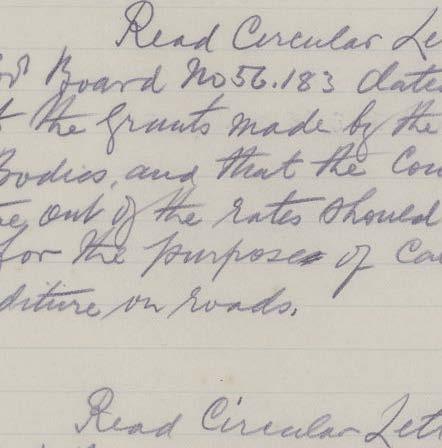 Read Circular Le
Board No 56.183 date
the Grants made by the
Bodies, and that the Cou
out of the rates should
for the purpose of Ca
diture on roads.
Read Circular Lett